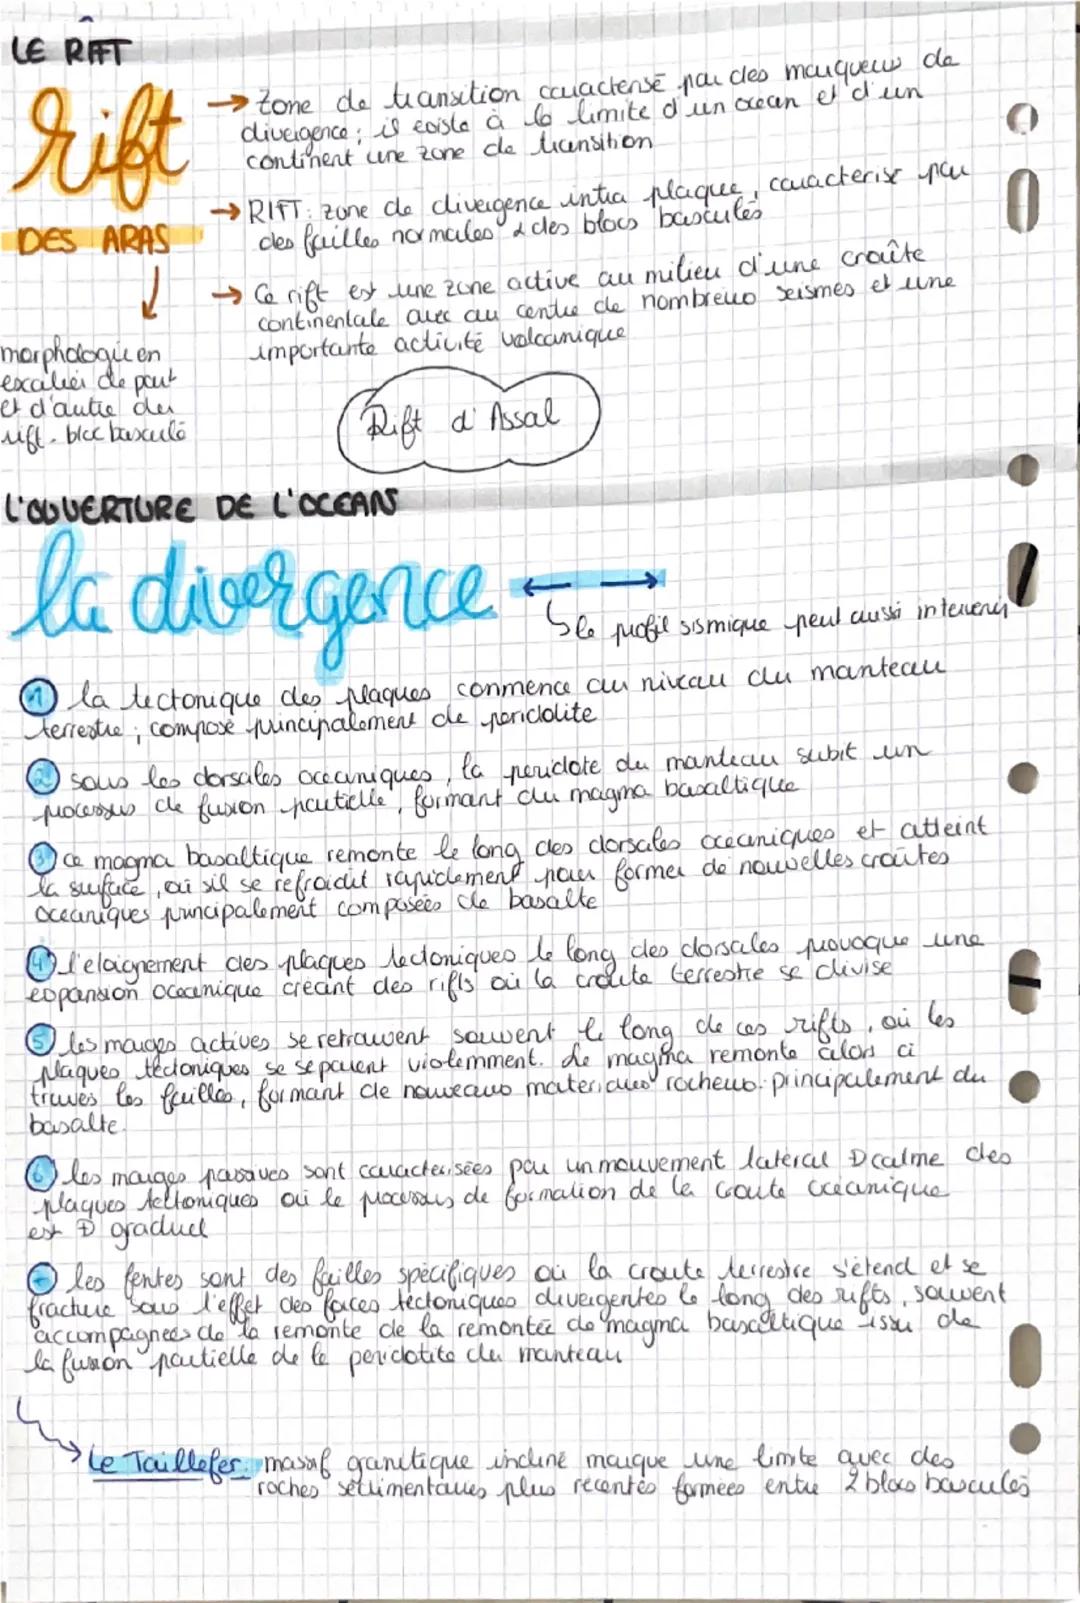 LE RIFT
rift
DES ARAS
→ zone de transition caractérisé par des marqueurs de
divergence ; il existe à la limite d'un océan et d'un
continent une zone de transition
→ RIFT : zone de divergence intra plaque, caractérisé par
des failles normales & des blocs basculés
→ Ce rift est une zone active au milieu d'une croûte
continentale avec au centre de nombreux seismes et une
importante activité volcanique
morphologie en
escalier de part
et d'autre du
rift - bloc basculé
Rift d'Assal
L'OUVERTURE DE L'OCEANS
la divergence ← →
↳ le profil sismique peut aussi intervenir
1 la tectonique des plaques commence au niveau du manteau
terrestre ; composé principalement de peridolite
2 sous les dorsales océaniques, la peridote du manteau subit un
processus de fusion partielle, formant du magma basaltique
3 ce magma basaltique remonte le long des dorsales oceaniques et atteint
la surface, où sil se refroidit rapidement pour former de nouvelles croûtes
oceaniques principalement composées de basalte
4 l'eloignement des plaques tectoniques le long des dorsales provoque une
expansion oceanique créant des rifts où la croûte terrestre se divise
5 les marges actives se retrouvent souvent le long de ces rifts, où les
plaques tectoniques se separent violemment. Le magma remonte alors a
travers les failles, formant de nouveaux materiaux rocheux. principalement du
basalte.
6 les marges passives sont caracterisées par un mouvement latéral D calme des
plaques tectoniques où le processus de formation de la croute océanique
est D graduel
les fentes sont des failles spécifiques où la croute terrestre s'étend et se
fracture sous l'effet des forces tectoniques divergentes le long des rifts, souvent
accompagnées de la remonte de la remontée de magma basaltique issu de
la fusion partielle de la peridotite du manteau
Le Taillefer : massif granitique incliné marque une limite avec des
roches sédimentaires plus recentes formées entre 2 blocs basculés